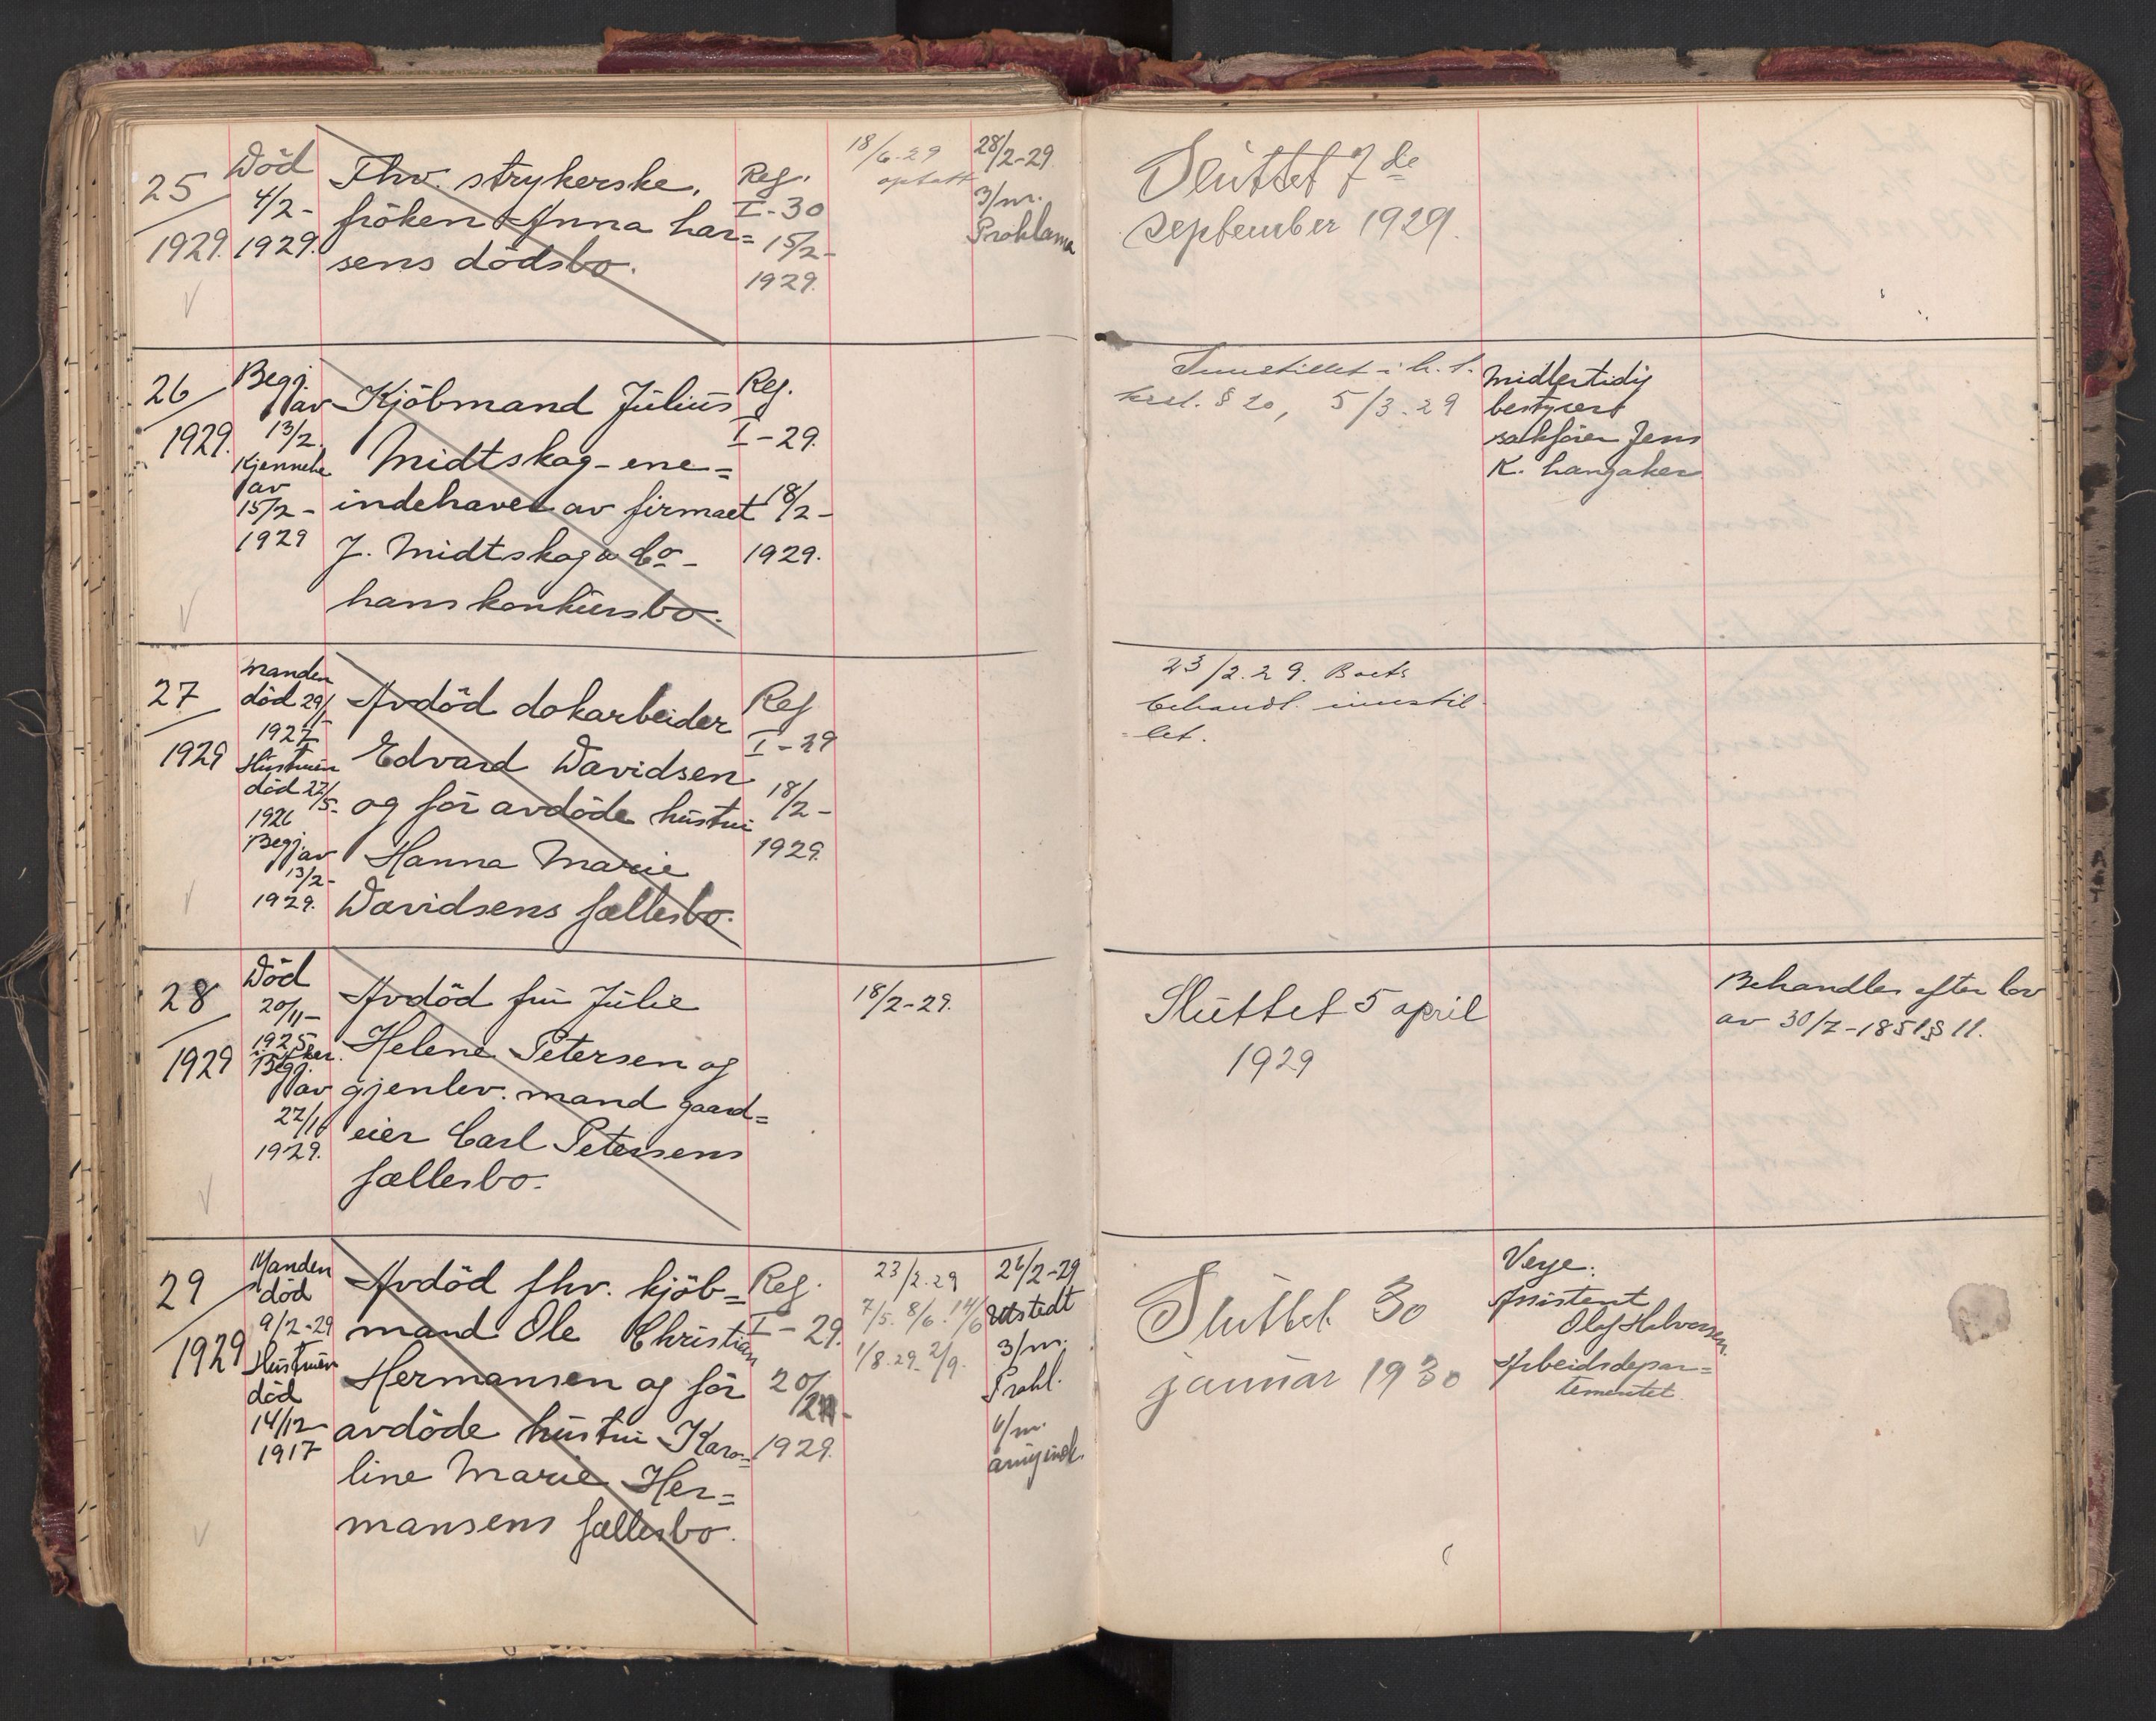 25
1929.
Död
4/2-
1929.
Fhv. strykerske,
fröken Anna Lar=
sens dödsbo.
Reg.
I-30
15/2-
1929.
18/6-29
optatt
28/2-29
3/m.
Proklama
Sluttet 7de
september 1929.
26
1929.
Begj.
av
13/2.
Kjennelse
av
15/2-
1929
Kjöbmand Julius
Midtskog-ene=
indehaver av firmaet
J. Midtskog & Co-
hans konkursbo.
Reg.
I-29.
18/2-
1929.
Innstillet i h. t.
§ 20, 5/3.29
Midlertidig
bestyrer
sakförer Jens
K. Langaker
27
1929
Manden
död 29/1-
1927
Hustruen
död 22/5-
1926
Begj. av
13/2-
1929.
Avdöd dokarbeider
Edvard Davidsen
og för avdöde hustru
Hanna Marie
Davidsens fællesbo.
Reg
I-29
18/2-
1929.
23/2.29. Boets
behandl. innstil-
=let.
28
1929
Död
20/11-
1925
Begj.
av
1929.
Avdöd fru Julie
Helene Petersen og
gjenlev. mand gaard=
eier Carl Petersens
fællesbo.
18/2-29.
Sluttet 5 april
1929
Behandles efter lov
av 30/7-1851 § 11.
29
1929
Manden
död
9/2-29
Hustruen
död
14/12-
1917
Avdöd fhv. kjöb=
mand Ole Christian
Hermansen og för
avdöde hustru Karo=
line Marie Her=
mansens fællesbo.
Reg.
I-29.
20/2-
1929.
23/2.29
7/5. 8/6. 14/6
1/8.29. 2/9.
26/2-29
Utstedt
3/m.
Prokl.
6/m.
Sluttet 30
januar 1930
Verge:
Assistent
Olaf Halvorsen
Arbeidsdepar=
tementet.